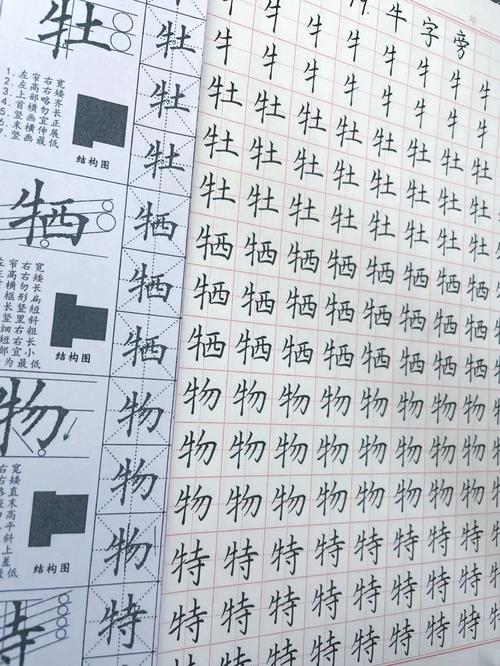 19. 牛字旁
年
牡
1.左窄右宽
2.左高右矮
结构图
牡
牡
牡
牺
窄右宽
高右矮
结构图
牺
牺
牺
物
右宽
右矮
结构图
物
物
物
特
特
牛牛牛牛牛牛牛牛
牛牛牛牛牛牛牛牛
牡牡牡牡牡牡牡牡
牡牡牡牡牡牡牡牡
牡牡牡牡牡牡牡牡
牺牺牺牺牺牺牺牺
牺牺牺牺牺牺牺牺
牺牺牺牺牺牺牺牺
物物物物物物物物
物物物物物物物物
物物物物物物物物
特特特特特特特特
特特特特特特特特
特特特特特特特特